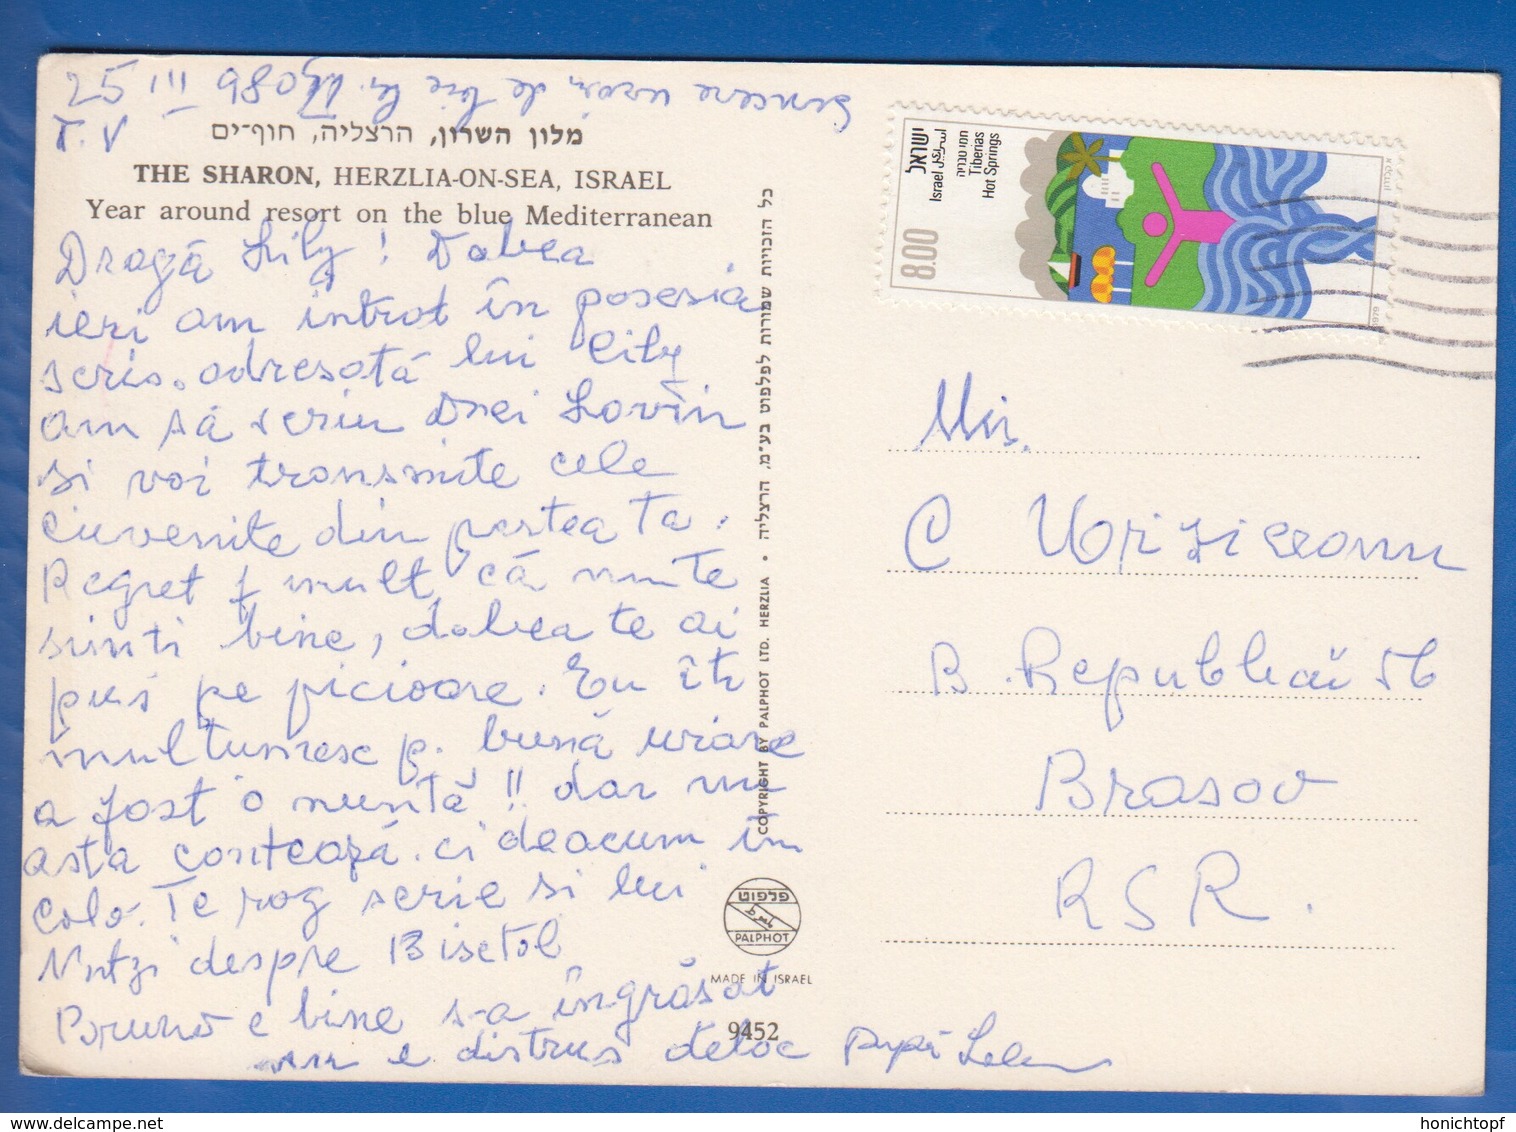 25 III 980
T.V
מלון השרון, הרצליה, חוף-ים
THE SHARON, HERZLIA-ON-SEA, ISRAEL
Year around resort on the blue Mediterranean
Dragă Lily! Dabea
ieri am intrat în posesia
scris. adresată lui Lily
am să scriu Dnei Lovin
si voi transmite cele
cuvenite din partea ta.
Regret f mult că nu te
simti bine, dabea te ai
pus pe picioare. Eu îti
multumesc p. bună urare
a fost o nuntă!! dar nu
asta contează. ci deacum în
colo. Te rog scrie si lui
Mutzi despre Bisetol
Bruno e bine s-a îngrăsat
nu e distrus deloc Papă
כל הזכויות שמורות לפלפוט בע"מ, הרצליה • COPYRIGHT BY PALPHOT LTD. HERZLIA
פלפוט
PALPHOT
MADE IN ISRAEL
9452
ישראל
اسرائيل
Israel
חמי טבריה
Tiberias
Hot Springs
8.00
1979
Mrs.
C Urziceanu
B. Republicii 56
Brasov
RSR.
honichtopf